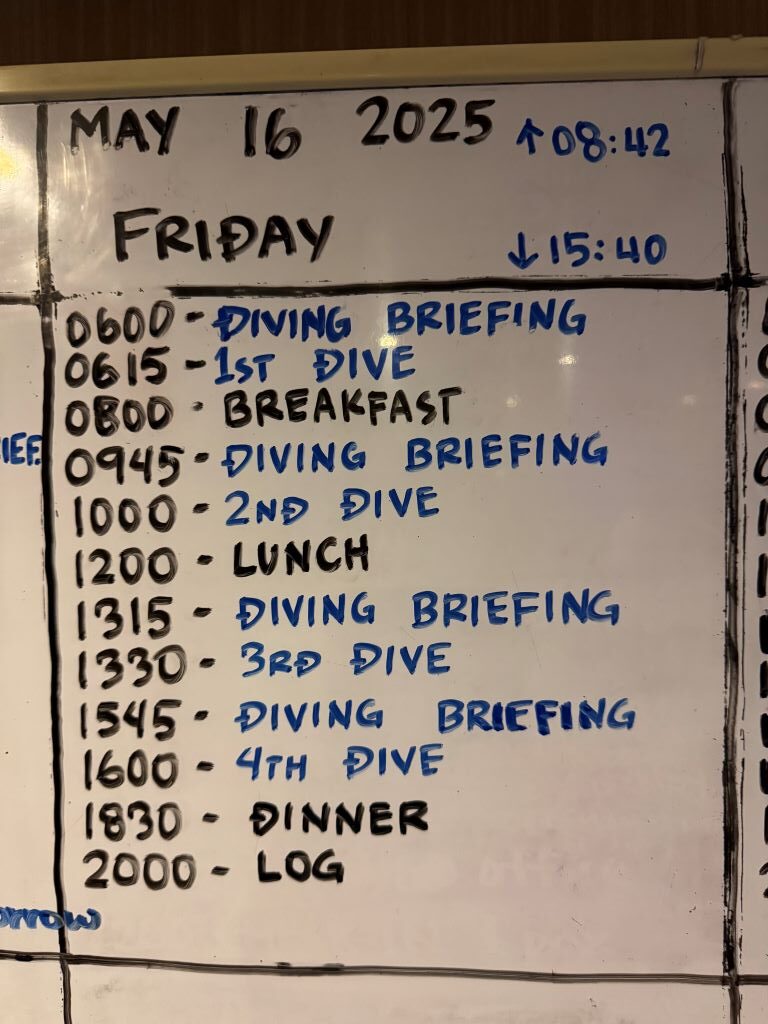 MAY 16 2025 ↑08:42
FRIDAY ↓15:40
0600 - DIVING BRIEFING
0615 - 1ST DIVE
0800 - BREAKFAST
0945 - DIVING BRIEFING
1000 - 2ND DIVE
1200 - LUNCH
1315 - DIVING BRIEFING
1330 - 3RD DIVE
1545 - DIVING BRIEFING
1600 - 4TH DIVE
1830 - DINNER
2000 - LOG